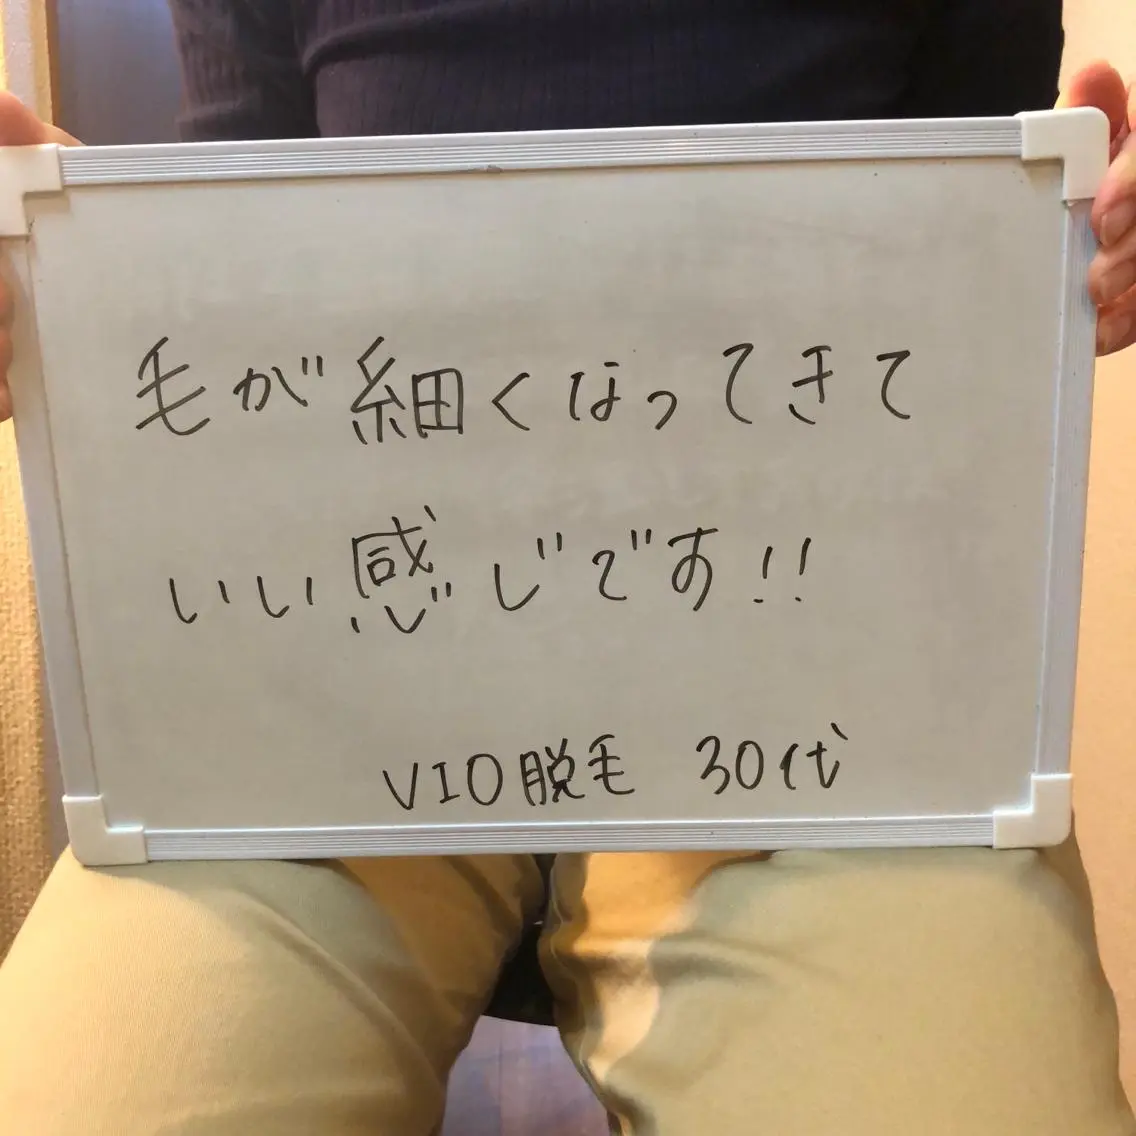 毛が細くなってきて
いい感じです!!
VIO脱毛 30代